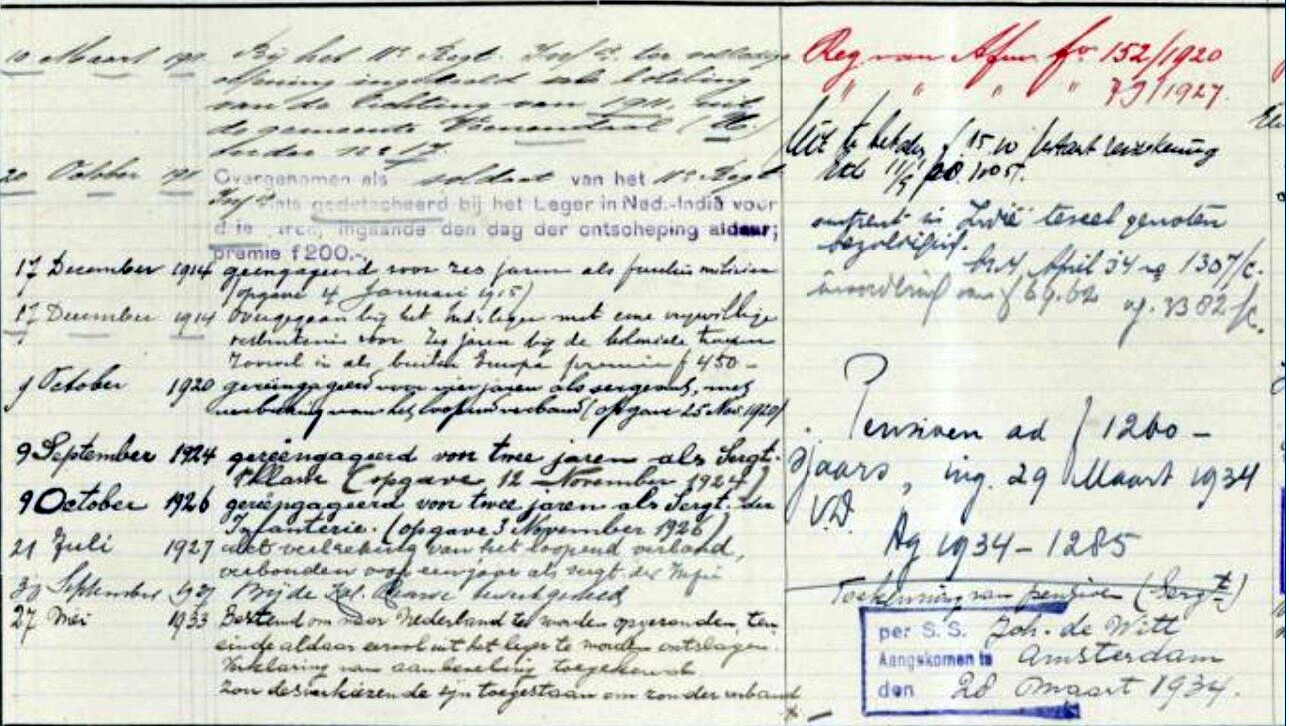 10 Maart 1911 Bij het 11e Regt. Inf.ie ter volledige
oefening ingedeeld als loteling
van de lichting van 1911, uit
de gemeente Veenendaal (U.)
onder no 17.
20 October 191 Overgenomen als soldaat van het 11e Regt
Inf.ie gedetacheerd bij het Leger in Ned.-Indië voor
drie jaren, ingaande den dag der ontscheping aldaar;
premie f 200.-
17 December 1914 geëngageerd voor zes jaren als fuselier militien
(opgave 4 Januari 1915)
17 December 1914 Overgegaan bij het leger met eene vrijwillige
verbintenis voor zes jaren bij de koloniale troepen
zoowel in als buiten Europa premie f 450 -
9 October 1920 gereëngageerd voor vier jaren als sergeant, met
verbreking van het loopend verband (opgave 25 Nov. 1920)
9 September 1924 gereëngageerd voor twee jaren als Sergt.
1e Klasse (opgave 12 November 1924)
9 October 1926 gereëngageerd voor twee jaren als Sergt. der
Infanterie. (opgave 3 November 1926)
21 Juli 1927 met verbreking van het loopend verband,
verbonden voor een jaar als sergt. der Infie
30 September 1927 Bij de Kol. Reserve
27 Mei 1933 Bestemd om naar Nederland te worden opgezonden, ten
einde aldaar eervol uit het leger te worden ontslagen.
Verklaring van aanbeveling toegekend
Zou desverkiezende zijn toegestaan om zonder verband
Reg. van Afm. fo. 152/1920
" " " " 73/1927
Uit te betalen f 15.10
omtrent in Indië teveel genoten
bezoldigd.
April 34 no 1307/c.
van f 69.62 3382/c.
Pensioen ad f 1260 -
's jaars, ing. 29 Maart 1934
V.D.
Ag 1934 - 1285
Toekenning van pensioen (Sergt)
per S.S. Joh. de Witt
Aangekomen te Amsterdam
den 28 Maart 1934.